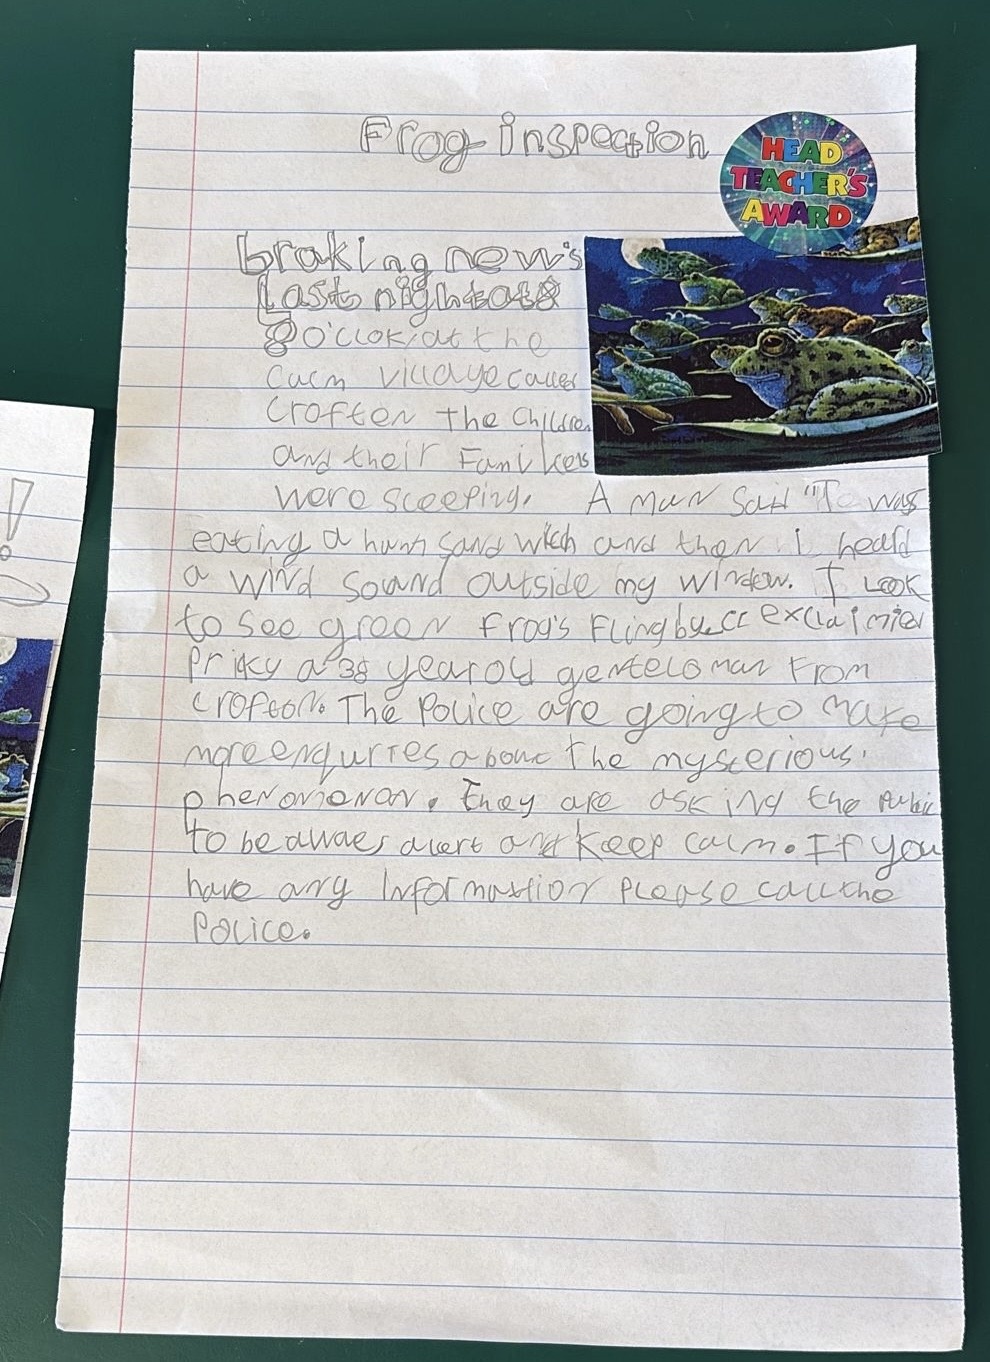 Frog inspection
HEAD
TEACHER'S
AWARD
braking new's
Last night at 8
8 o'clok, at the
calm village called
Crofton The Children
and their Families
were sleeping. A man said "I was
eating a ham sandwich and then i heald
a wind sound outside my window. I Look
to see green frog's Fling by"
Pricky a 38 year old gentelo man From
Crofton. The Police are going to make
more enqurries about the mysterious
phenomenon. They are asking the public
to be awaer, alert and keep calm. If you
have any information Please call the
Police.
!